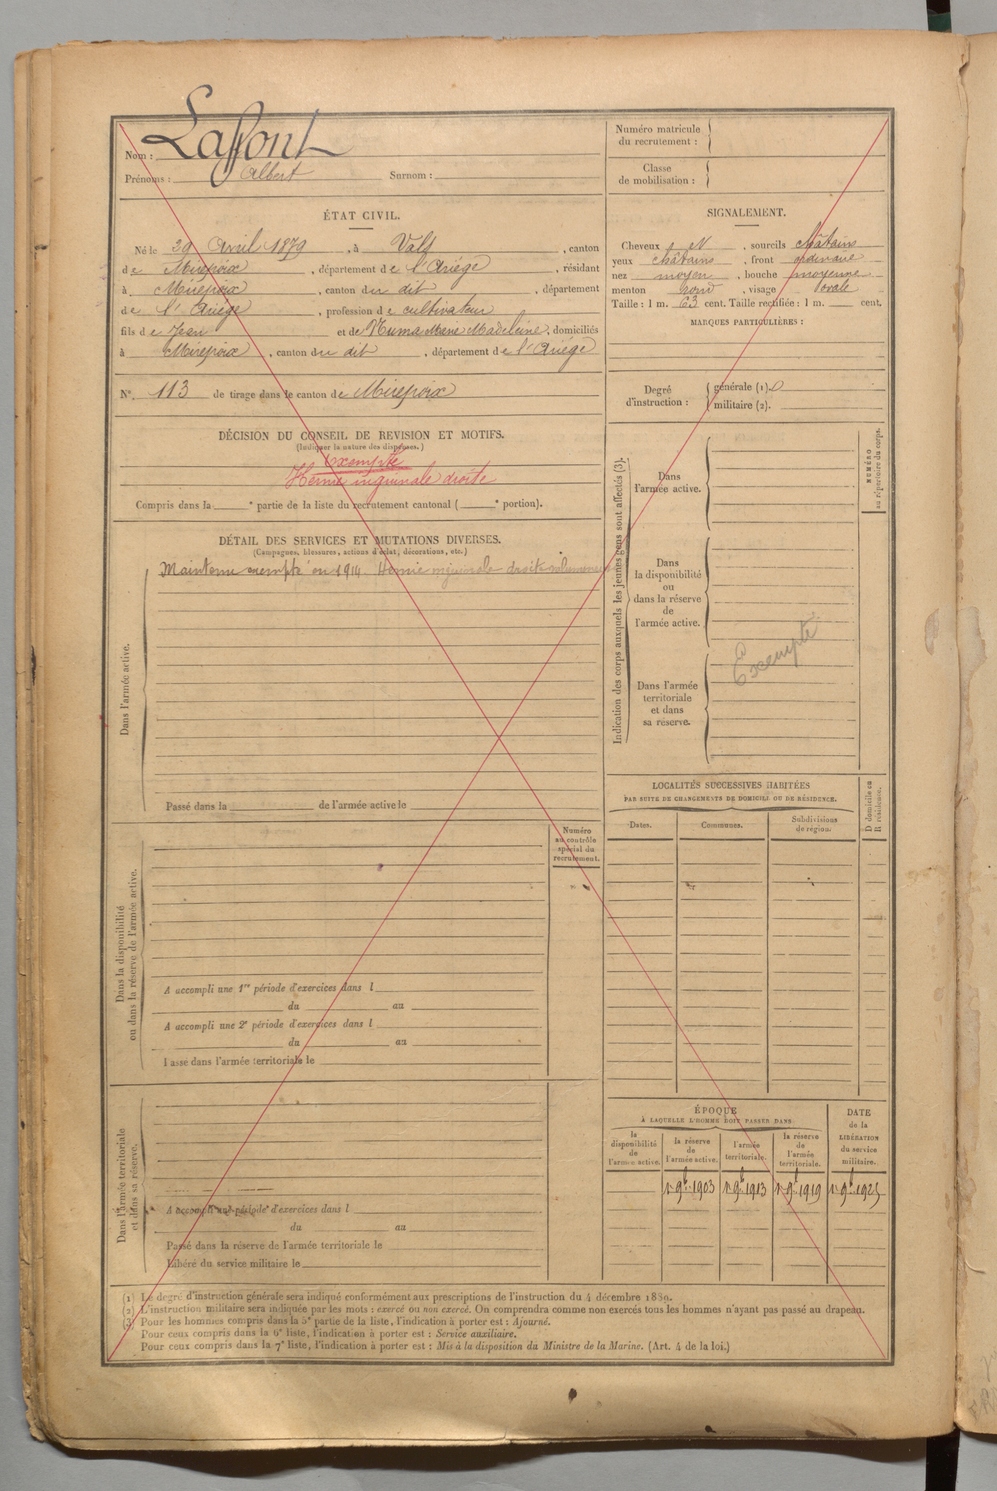 Nom : Laffont
Prénoms : Albert Surnom :
ÉTAT CIVIL.
Né le 29 Avril 1879, à Vals, canton
de Mirepoix, département de l'Ariège, résidant
à Mirepoix, canton du dit, département
de l'Ariège, profession de cultivateur
fils de Jean et de Numa Marie Madeleine, domiciliés
à Mirepoix, canton du dit, département de l'Ariège
N°. 113 de tirage dans le canton de Mirepoix
DÉCISION DU CONSEIL DE REVISION ET MOTIFS.
(Indiquer la nature des dispenses.)
Exempté
Hernie inguinale droite
Compris dans la e partie de la liste du recrutement cantonal ( e portion).
DÉTAIL DES SERVICES ET MUTATIONS DIVERSES.
(Campagnes, blessures, actions d'éclat, décorations, etc.)
Maintenu exempté en 1914 Hernie inguinale droite
Dans l'armée active.
Passé dans la de l'armée active le
Numéro
au contrôle
spécial du
recrutement.
Dans la disponibilité
ou dans la réserve de l'armée active.
A accompli une 1re période d'exercices dans l
du au
A accompli une 2e période d'exercices dans l
du au
Passé dans l'armée territoriale le
Dans l'armée territoriale
et dans sa réserve.
A accompli une période d'exercices dans l
du au
Passé dans la réserve de l'armée territoriale le
Libéré du service militaire le
Numéro matricule
du recrutement :
Classe
de mobilisation :
SIGNALEMENT.
Cheveux N, sourcils châtains
yeux châtains, front ordinaire
nez moyen, bouche moyenne
menton rond, visage ovale
Taille : 1 m. 63 cent. Taille rectifiée : 1 m. cent.
MARQUES PARTICULIÈRES :
Degré
d'instruction :
générale (1). 0
militaire (2).
Indication des corps auxquels les jeunes gens sont affectés (3).
Dans
l'armée active.
Dans
la disponibilité
ou
dans la réserve
de
l'armée active.
Dans l'armée
territoriale
et dans
sa réserve.
Exempté
NUMÉRO
au répertoire du corps.
LOCALITÉS SUCCESSIVES HABITÉES
PAR SUITE DE CHANGEMENTS DE DOMICILE OU DE RÉSIDENCE.
Dates. Communes. Subdivisions
de région.
D domicile ou
R résidence.
ÉPOQUE
À LAQUELLE L'HOMME DOIT PASSER DANS
la
disponibilité
de
l'armée active.
la réserve
de
l'armée active.
l'armée
territoriale.
la réserve
de
l'armée
territoriale.
DATE
de la
LIBÉRATION
du service
militaire.
1er 9bre 1903 1er 9bre 1913 1er 9bre 1919 1er 9bre 1925
(1) Le degré d'instruction générale sera indiqué conformément aux prescriptions de l'instruction du 4 décembre 1889.
(2) L'instruction militaire sera indiquée par les mots : exercé ou non exercé. On comprendra comme non exercés tous les hommes n'ayant pas passé au drapeau.
(3) Pour les hommes compris dans la 5e partie de la liste, l'indication à porter est : Ajourné.
Pour ceux compris dans la 6e liste, l'indication à porter est : Service auxiliaire.
Pour ceux compris dans la 7e liste, l'indication à porter est : Mis à la disposition du Ministre de la Marine. (Art. 4 de la loi.)